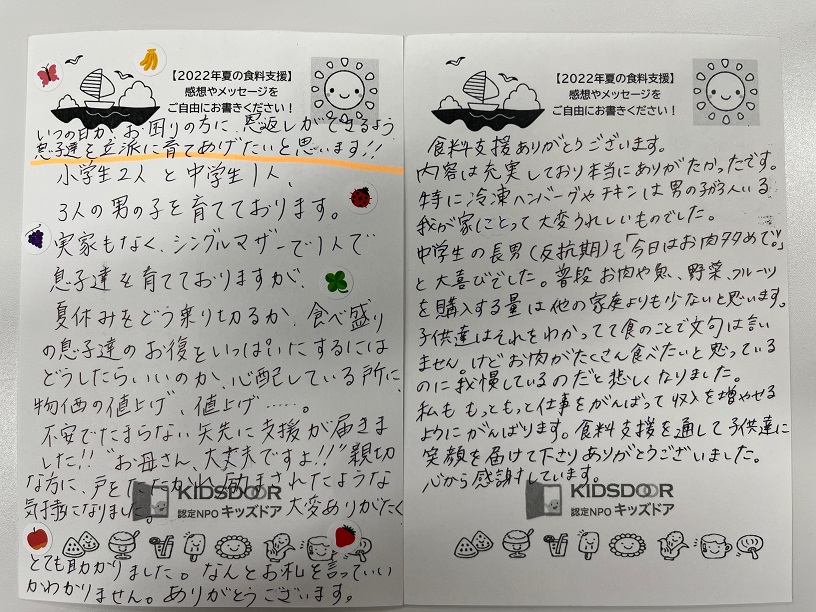 【2022年夏の食料支援】
感想やメッセージを
ご自由にお書きください！
いつの日か、お困りの方に、恩返しができるよう
息子達を立派に育てあげたいと思います!!
小学生2人と中学生1人、
3人の男の子を育てております。
実家もなく、シングルマザーで1人で
息子達を育てておりますが、
夏休みをどう乗り切るか、食べ盛り
の息子達のお腹をいっぱいにするには
どうしたらいいのか、心配している所に、
物価の値上げ、値上げ……。
不安でたまらない矢先に支援が届きま
した!!"お母さん、大丈夫ですよ!!"親切
な方に、戸をたたかれ、励まされたような
気持になりました。大変ありがたく
KIDSDOOR
認定NPO キッズドア
とても助かりました。なんとお礼を言っていい
かわかりません。ありがとうございます。
【2022年夏の食料支援】
感想やメッセージを
ご自由にお書きください！
食料支援ありがとうございます。
内容は充実しており本当にありがたかったです。
特に冷凍ハンバーグやチキンは男の子が3人いる
我が家にとって大変うれしいものでした。
中学生の長男(反抗期)も「今日はお肉多めで。」
と大喜びでした。普段お肉や魚、野菜、フルーツ
を購入する量は他の家庭よりも少ないと思います。
子供達はそれをわかってて食のことで文句は言い
ません。けどお肉がたくさん食べたいと思っている
のに我慢しているのだと悲しくなりました。
私ももっともっと仕事をがんばって収入を増やせる
ようにがんばります。食料支援を通して子供達に
笑顔を届けて下さりありがとうございました。
心から感謝しています。
KIDSDOOR
認定NPO キッズドア